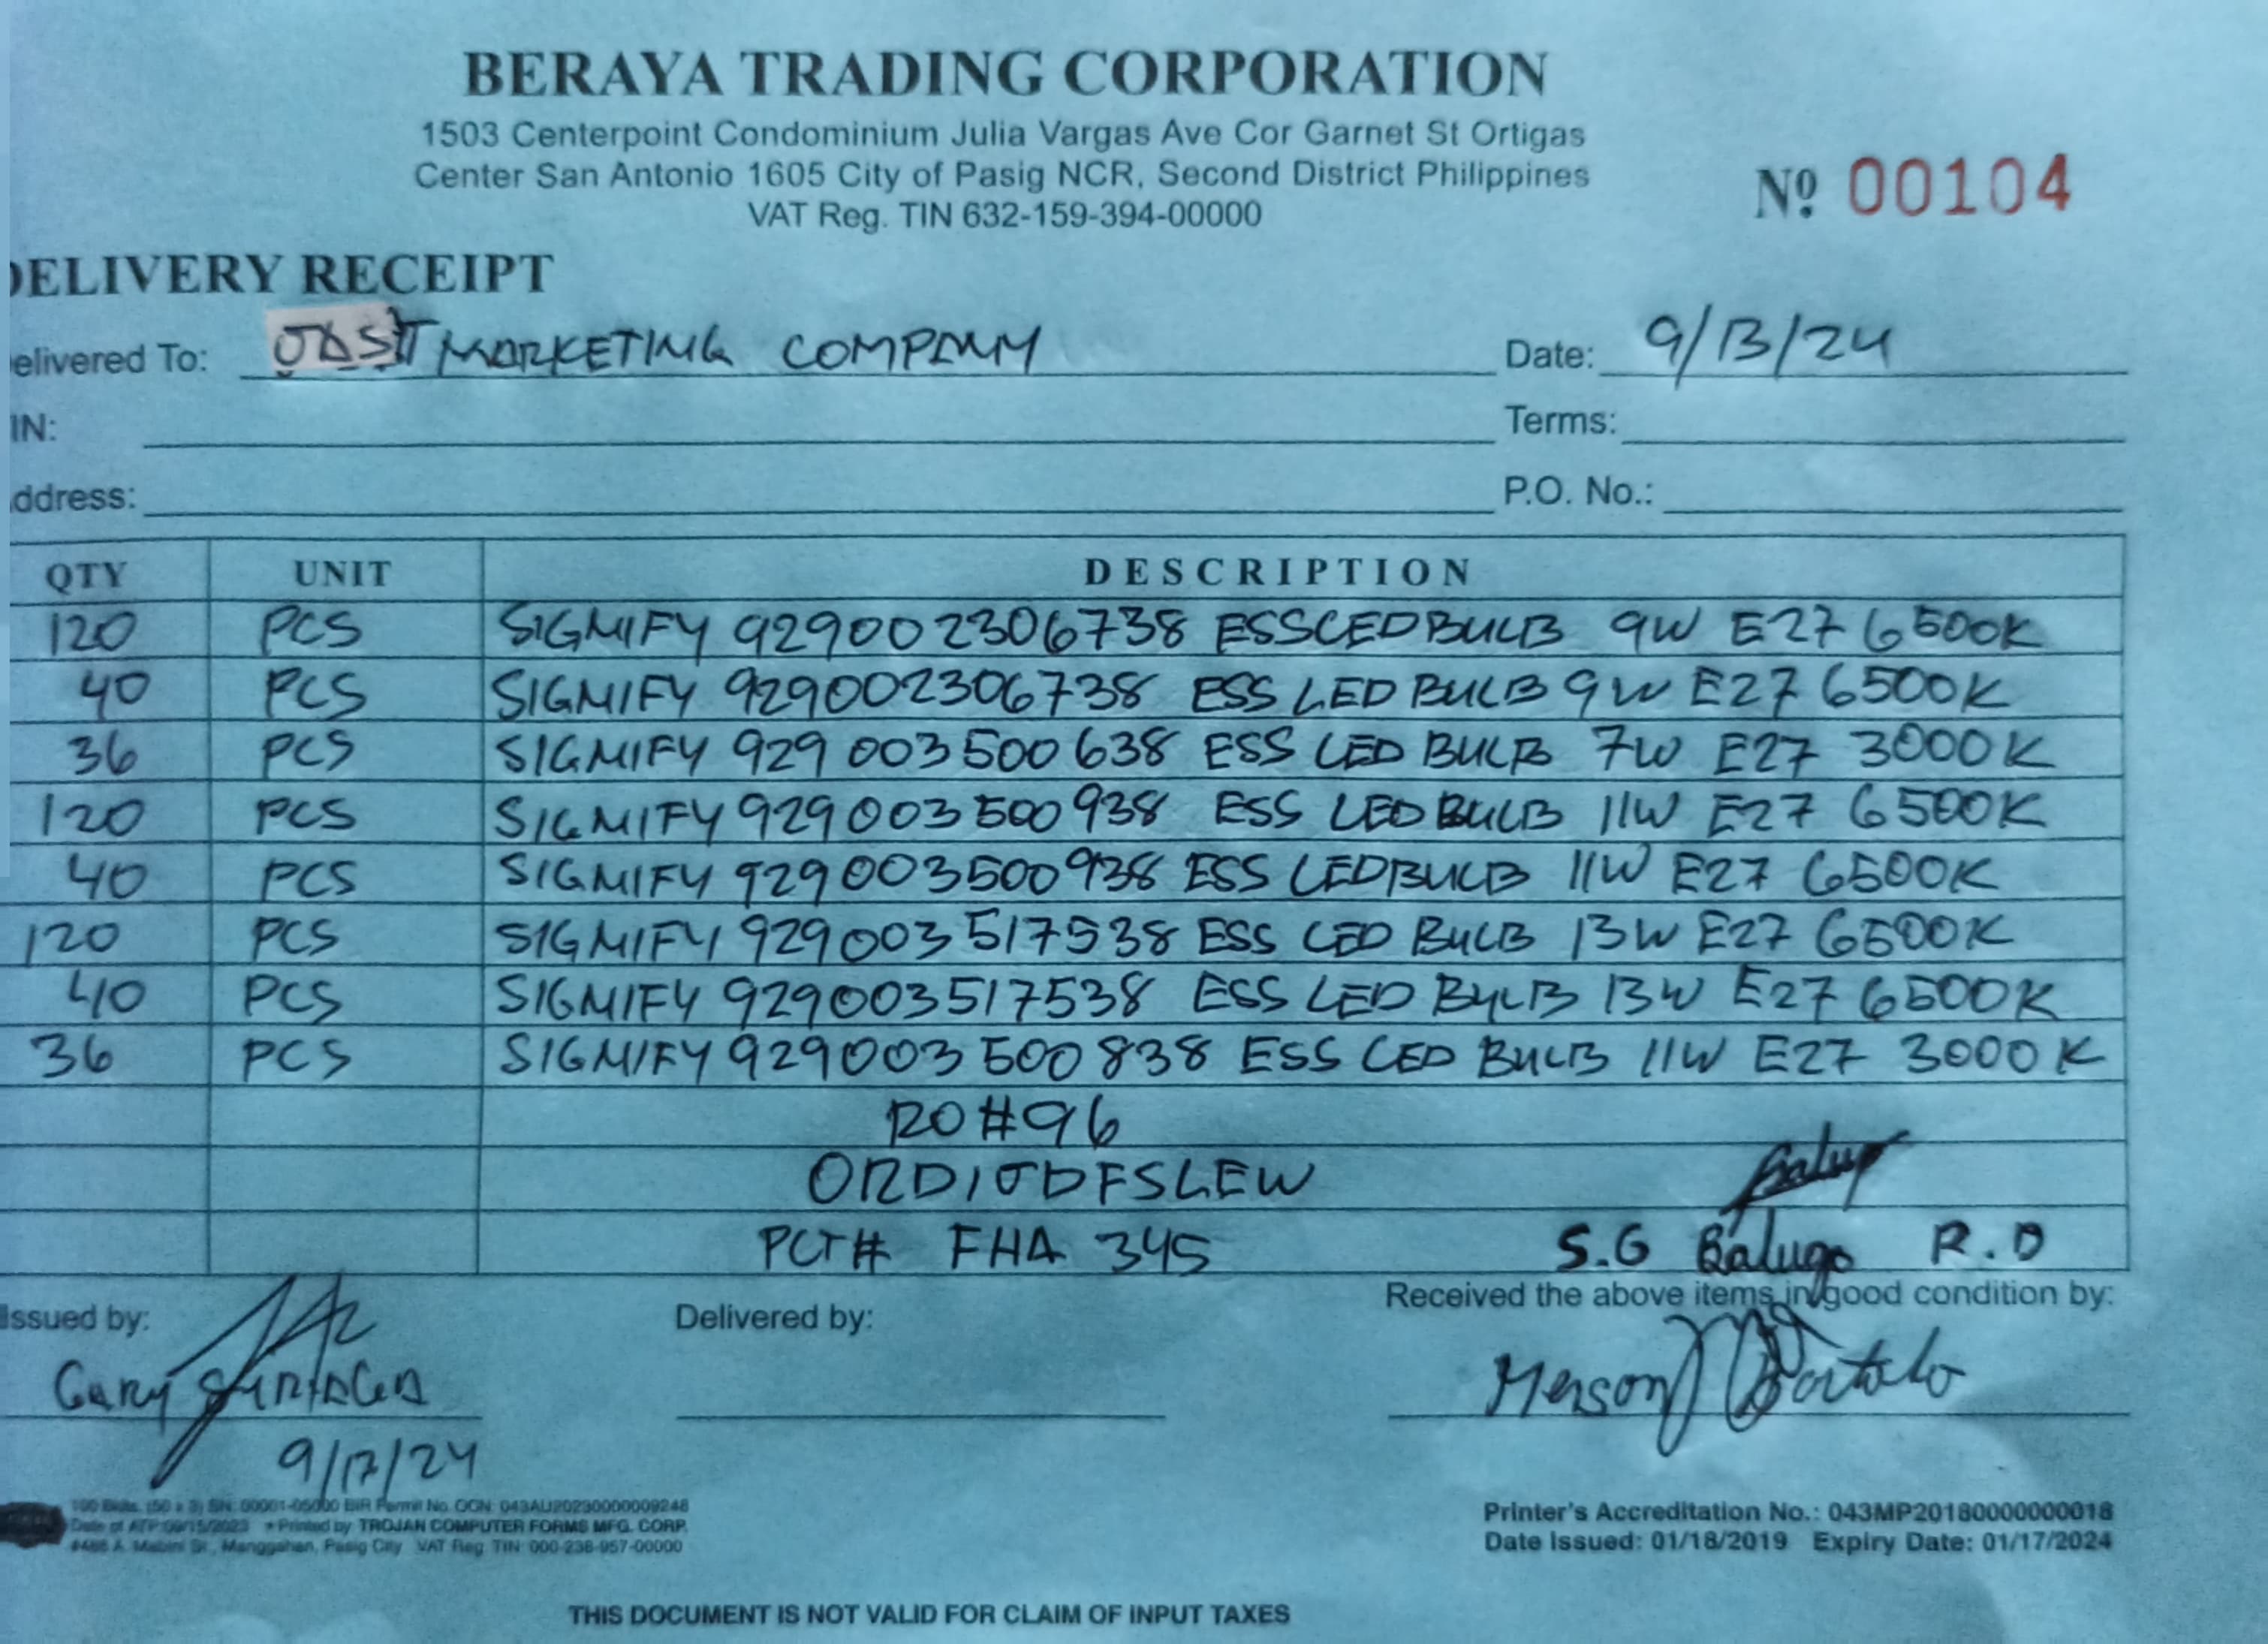 BERAYA TRADING CORPORATION
1503 Centerpoint Condominium Julia Vargas Ave Cor Garnet St Ortigas
Center San Antonio 1605 City of Pasig NCR, Second District Philippines
VAT Reg. TIN 632-159-394-00000
Nº 00104
DELIVERY RECEIPT
elivered To: MARKETING COMPANY Date: 9/13/24
IN: Terms:
ddress: P.O. No.:
QTY UNIT DESCRIPTION
120 PCS SIGNIFY 929002306738 ESSLEDBULB 9W E27 6500K
40 PCS SIGNIFY 929002306738 ESS LED BULB 9W E27 6500K
36 PCS SIGNIFY 929003500638 ESS LED BULB 7W E27 3000K
120 PCS SIGNIFY 929003500938 ESS LED BULB 11W E27 6500K
40 PCS SIGNIFY 929003500938 ESS LEDBULB 11W E27 6500K
120 PCS SIGNIFY 929003517538 ESS LED BULB 13W E27 6500K
40 PCS SIGNIFY 929003517538 ESS LED BULB 13W E27 6500K
36 PCS SIGNIFY 929003500838 ESS LED BULB 11W E27 3000K
RO#96
PCT# FHA 345 S.G Balugo R.D
Issued by: Delivered by: Received the above items in good condition by:
Gary
9/17/24
100 Bklts. (50 x 3) SN: 00001-05000 BIR Permit No. OCN: 043AU20230000009248
Date of ATP:09/15/2023 Printed by TROJAN COMPUTER FORMS MFG. CORP.
#486 A. Mabini St., Manggahan, Pasig City VAT Reg TIN: 000-236-957-00000
Printer's Accreditation No.: 043MP20180000000018
Date Issued: 01/18/2019 Expiry Date: 01/17/2024
THIS DOCUMENT IS NOT VALID FOR CLAIM OF INPUT TAXES